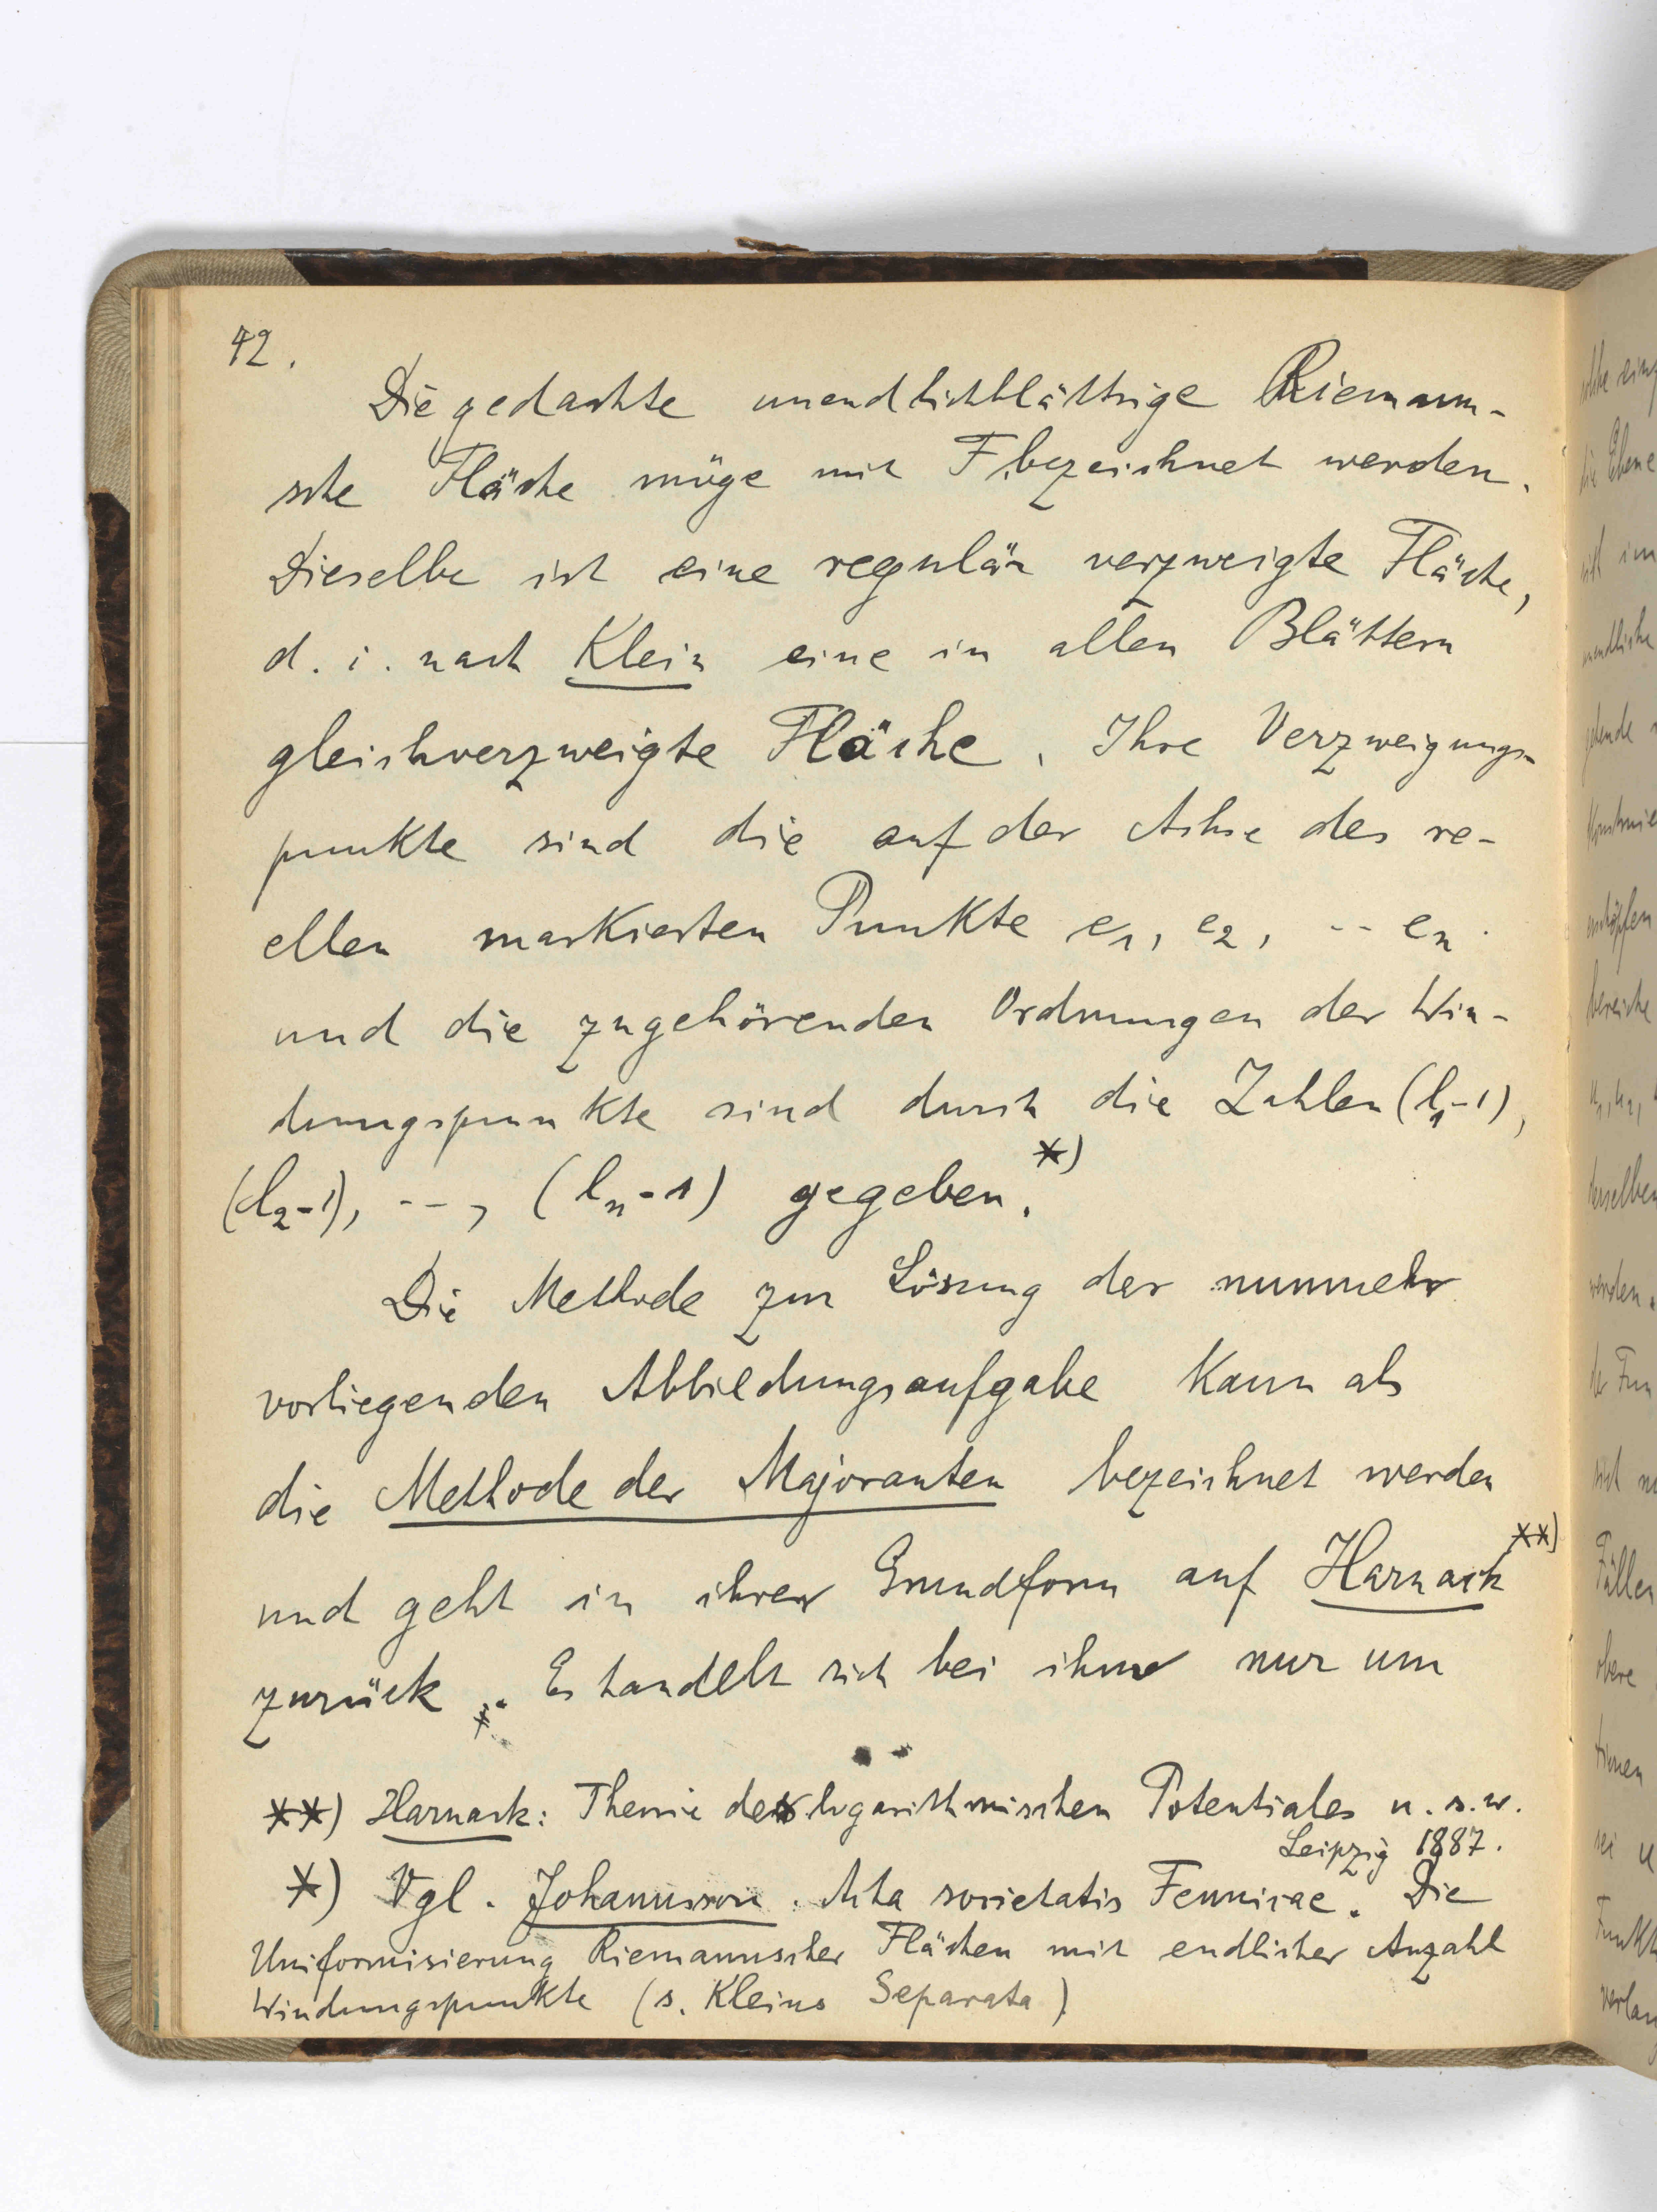 42.
Die gedachte unendlichblättrige Riemann-
sche Fläche möge mit F bezeichnet werden.
Dieselbe ist eine regulär verzweigte Fläche,
d. i. nach Klein eine in allen Blättern
gleichverzweigte Fläche. Ihre Verzweigungs-
punkte sind die auf der Achse des re-
ellen markierten Punkte e₁, e₂, -- eₙ
und die zugehörenden Ordnungen der Win-
dungspunkte sind durch die Zahlen (l₁-1),
(l₂-1), --, (lₙ-1) gegeben.*)
Die Methode zur Lösung der nunmehr
vorliegenden Abbildungsaufgabe kann als
die Methode der Majoranten bezeichnet werden
und geht in ihrer Grundform auf Harnack**)
zurück. Es handelt sich bei ihr nur um
**) Harnack: Theorie des logarithmischen Potentiales u.s.w.
Leipzig 1887.
*) Vgl. Johansson. Acta societatis Fennicae. Die
Uniformisierung Riemannscher Flächen mit endlicher Anzahl
Windungspunkte (s. Kleins Separata)